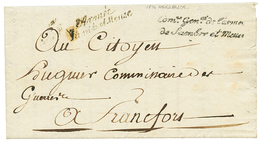 Armée
Comre. Genal. de l'armée
de Sambre et Meuse
Au Citoyen
Huguier Commissaire des
Guerres
A Francfort